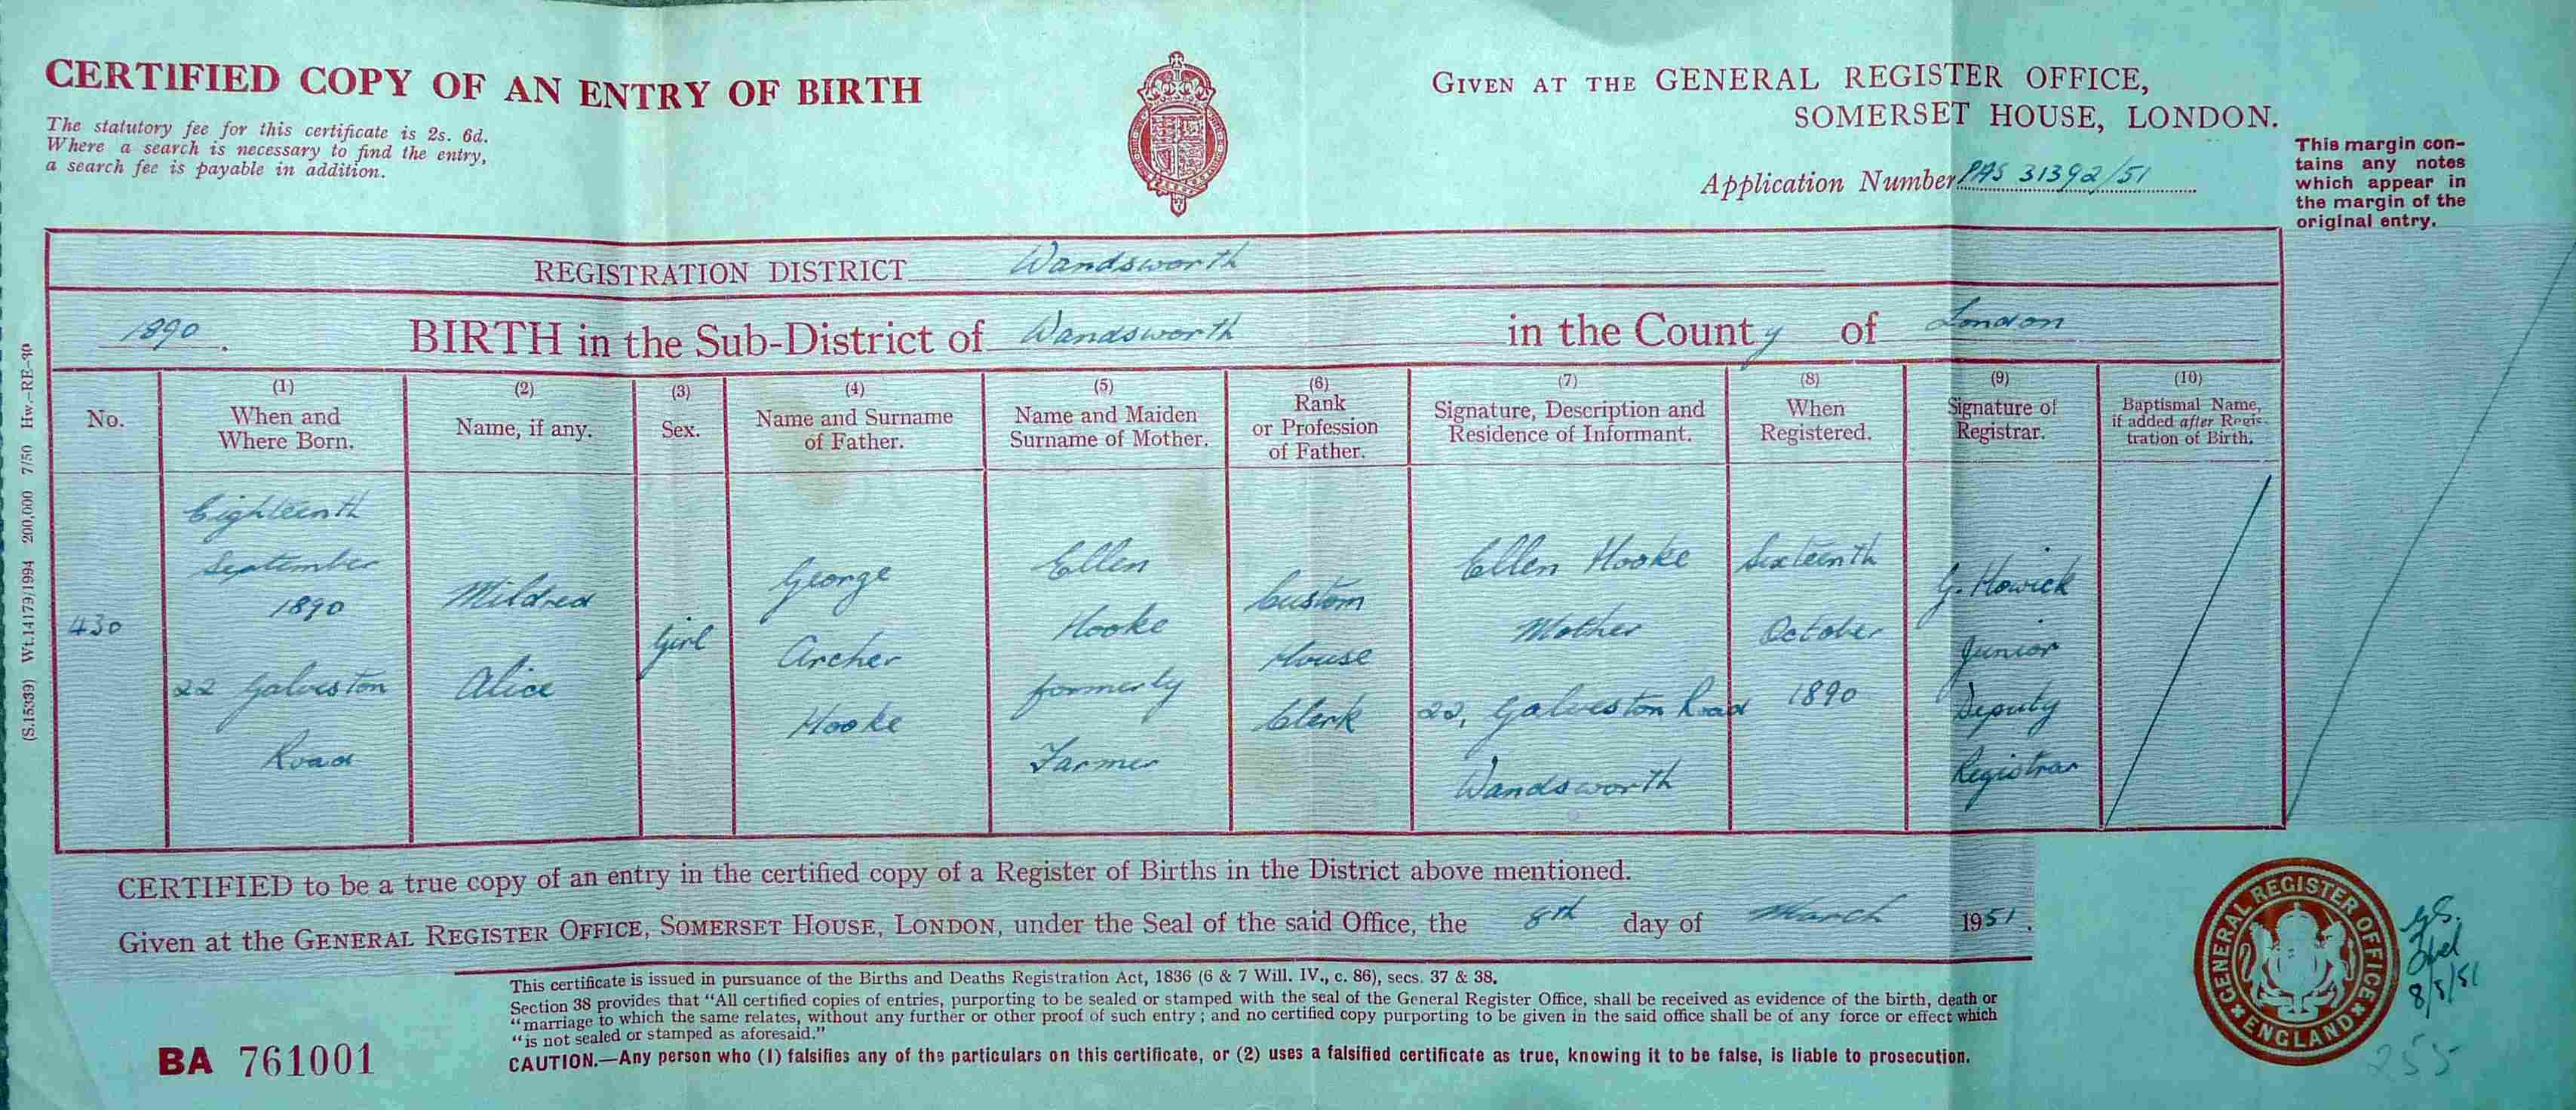 CERTIFIED COPY OF AN ENTRY OF BIRTH
The statutory fee for this certificate is 2s. 6d.
Where a search is necessary to find the entry,
a search fee is payable in addition.
GIVEN AT THE GENERAL REGISTER OFFICE,
SOMERSET HOUSE, LONDON.
Application Number PAS 31392/51
This margin con-
tains any notes
which appear in
the margin of the
original entry.
REGISTRATION DISTRICT Wandsworth
1890. BIRTH in the Sub-District of Wandsworth in the County of London
No.
(1)
When and
Where Born.
(2)
Name, if any.
(3)
Sex.
(4)
Name and Surname
of Father.
(5)
Name and Maiden
Surname of Mother.
(6)
Rank
or Profession
of Father.
(7)
Signature, Description and
Residence of Informant.
(8)
When
Registered.
(9)
Signature of
Registrar.
(10)
Baptismal Name,
if added after Regis-
tration of Birth.
430
Eighteenth
September
1890
22 Galveston
Road
Mildred
Alice
Girl
George
Archer
Hooke
Ellen
Hooke
formerly
Farmer
Custom
House
Clerk
Ellen Hooke
Mother
22, Galveston Road
Wandsworth
Sixteenth
October
1890
G. Howick
Junior
Deputy
Registrar
CERTIFIED to be a true copy of an entry in the certified copy of a Register of Births in the District above mentioned.
Given at the GENERAL REGISTER OFFICE, SOMERSET HOUSE, LONDON, under the Seal of the said Office, the 8th day of March 1951.
This certificate is issued in pursuance of the Births and Deaths Registration Act, 1836 (6 & 7 Will. IV., c. 86), secs. 37 & 38.
Section 38 provides that "All certified copies of entries, purporting to be sealed or stamped with the seal of the General Register Office, shall be received as evidence of the birth, death or
"marriage to which the same relates, without any further or other proof of such entry; and no certified copy purporting to be given in the said office shall be of any force or effect which
"is not sealed or stamped as aforesaid."
CAUTION.—Any person who (1) falsifies any of the particulars on this certificate, or (2) uses a falsified certificate as true, knowing it to be false, is liable to prosecution.
BA 761001
GENERAL REGISTER OFFICE
ENGLAND
255
(S.15339) Wt.14179/1994 200,000 7/50 Hw.